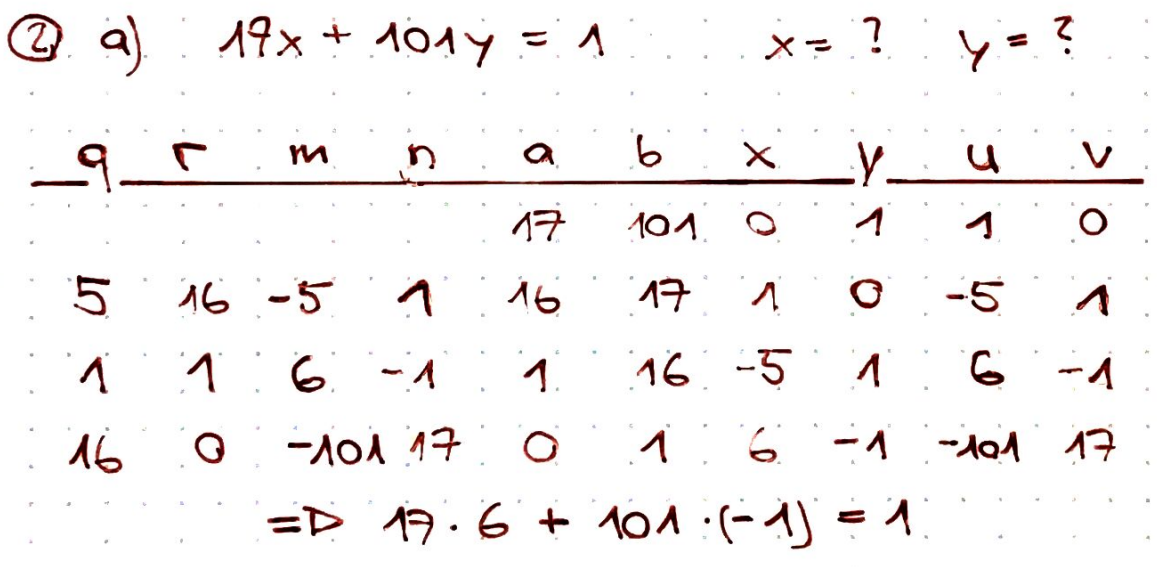 ② a) 17x + 101y = 1 x = ? y = ?
q r m n a b x y u v
17 101 0 1 1 0
5 16 -5 1 16 17 1 0 -5 1
1 1 6 -1 1 16 -5 1 6 -1
16 0 -101 17 0 1 6 -1 -101 17
⇒ 17 · 6 + 101 · (-1) = 1